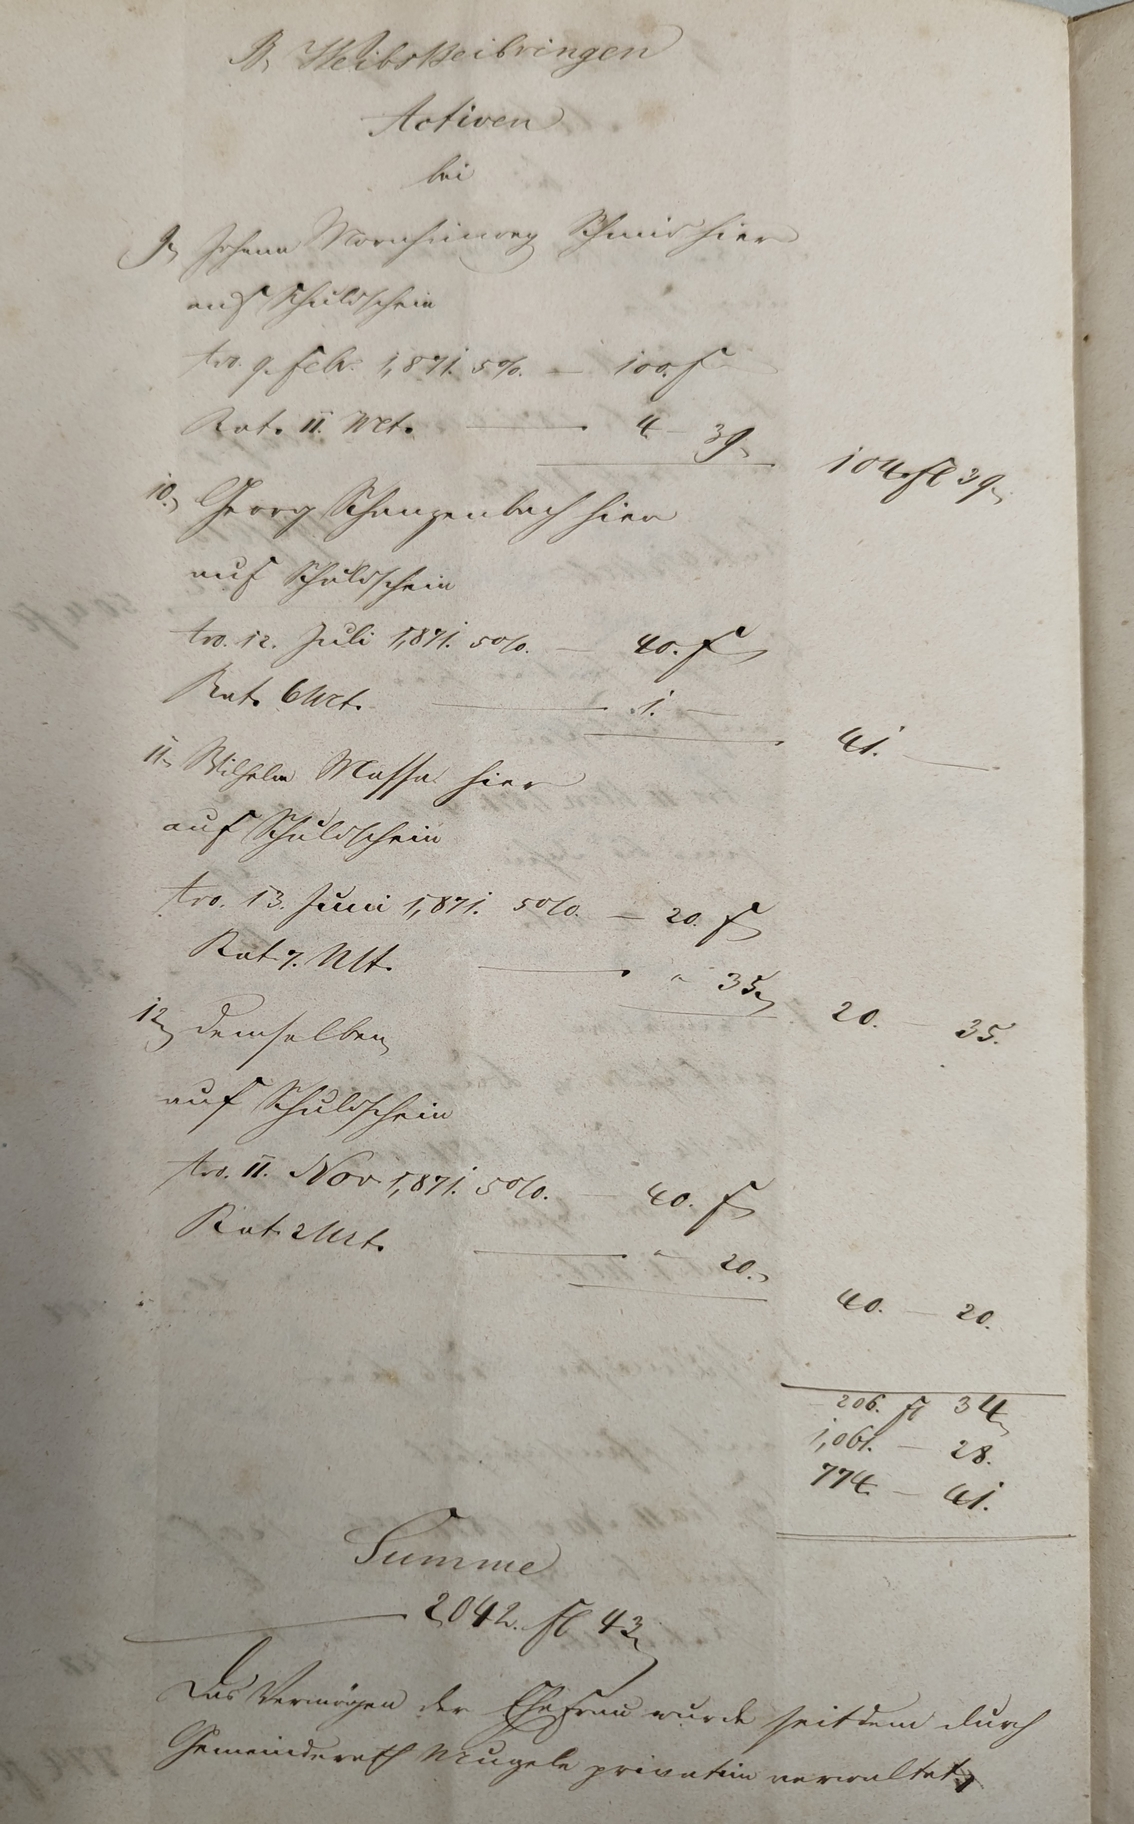 B, Weibsbeibringen
Activen
bei
9, Johann Schmid hier
auf Schuldschein
tro. 9. Febr. 1,871. 5%. — 100. f
Rat. 11. Mt. — 4 — 39,
104. fl 39,
10, Georg Schanzenbach hier
auf Schuldschein
tro. 12. Juli 1,871. 5%. — 40. f
Rat. 6 Mt. — 1. —
41. —
11, Wilhelm Massa hier
auf Schuldschein
tro. 13. Juni 1,871. 5%. — 20. f
Rat. 7. Mt. — " 35,
20. 35.
12, demselben
auf Schuldschein
tro. 11. Nov 1,871. 5%. — 40. f
Rat. 2 Mt. — " 20.,
40. — 20.
206. fl 34,
1,061. — 28.
774. — 41.
Summe
— 2042. fl 43,
Das Vermögen der Ehefrau wurde seitdem durch
Gemeinderath Mugele privatim verwaltet,